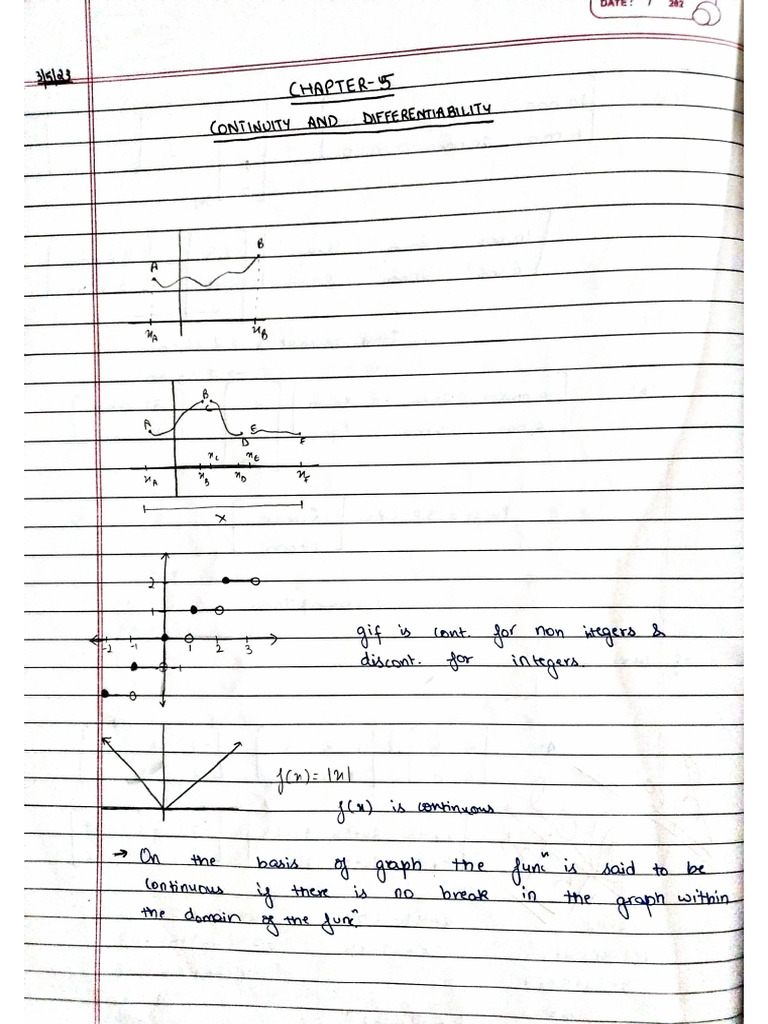 DATE: / 202
3/5/23
CHAPTER-5
CONTINUITY AND DIFFERENTIABILITY
A
B
xA
xB
A
B
C
D
E
F
xA
xB
xC
xD
xE
xF
X
2
1
-2 -1 1 2 3
-1
gif is cont. for non itegers &
discont. for integers.
f(x) = |x|
f(x) is continuous
→ On the basis of graph the funcⁿ is said to be
continuous if there is no break in the graph within
the domain of the funcⁿ.